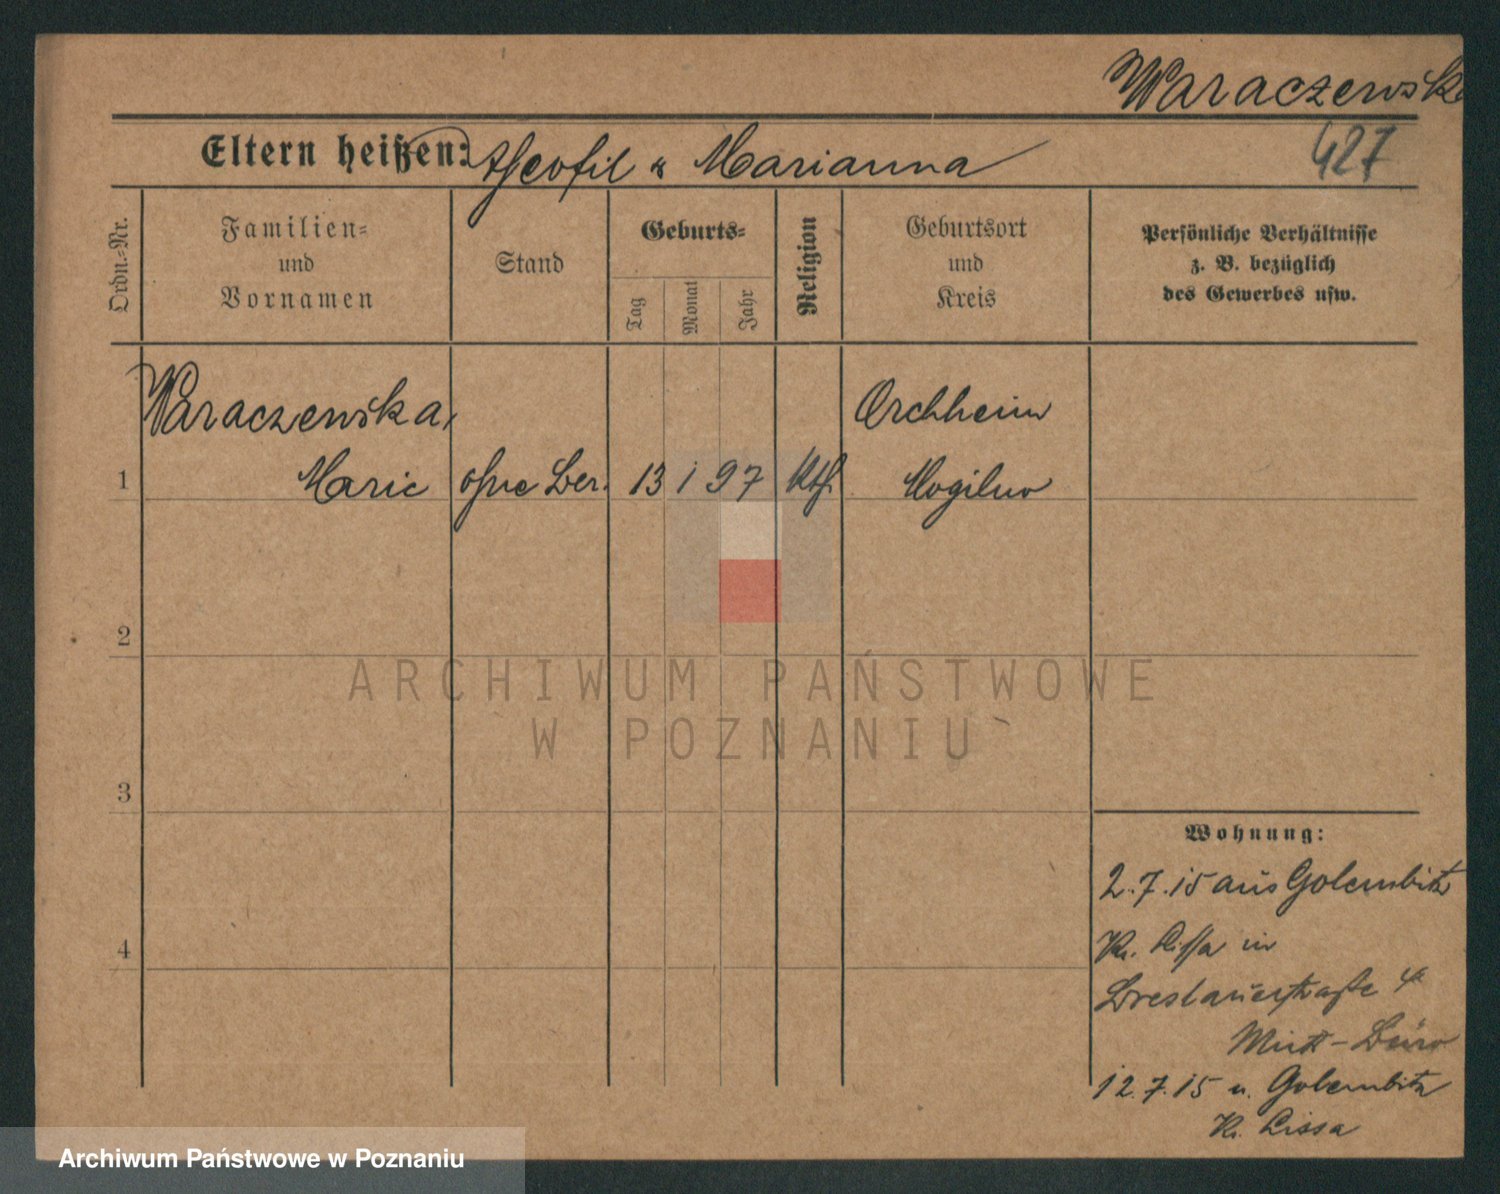 Waraczewsk
Eltern heißen: Theofil u Marianna
427
Ordn.-Nr.
Familien-
und
Vornamen
Stand
Geburts-
Tag
Monat
Jahr
Religion
Geburtsort
und
Kreis
Persönliche Verhältnisse
z. B. bezüglich
des Gewerbes usw.
Waraczewska,
Orchheim
1 Marie ohne Ber. 13 1 97 kth. Mogilno
2
ARCHIWUM PAŃSTWOWE
W POZNANIU
3
Wohnung:
2.7.15 aus Golembitz
Kr. Lissa in
4
Breslauerstraße 4
Miett-Büro
12.7.15 n. Golembitz
Kr. Lissa
Archiwum Państwowe w Poznaniu